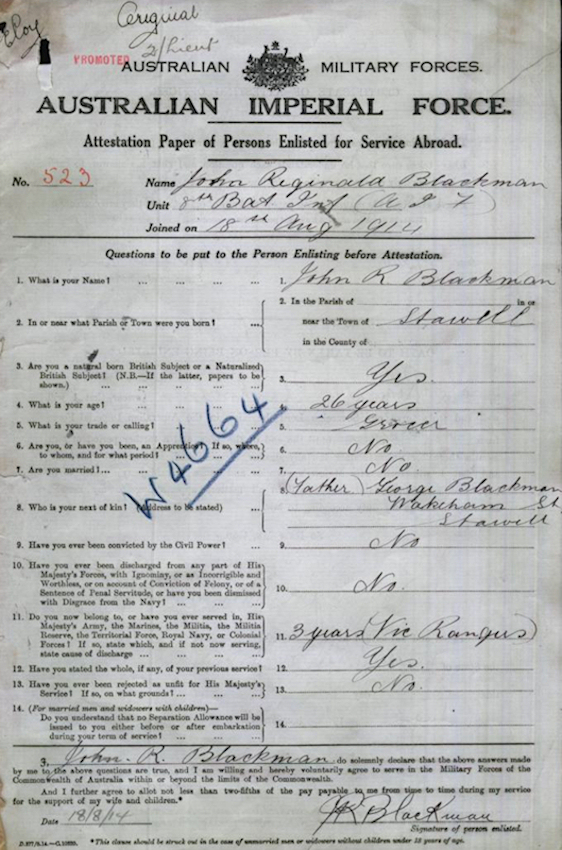 Original
2/Lieut
PROMOTED
AUSTRALIAN MILITARY FORCES.
AUSTRALIAN IMPERIAL FORCE.
Attestation Paper of Persons Enlisted for Service Abroad.
No. 523 Name John Reginald Blackman
Unit 8th Bat Inf (A I F)
Joined on 18th Aug 1914
Questions to be put to the Person Enlisting before Attestation.
1. What is your Name? ... ... ... ... 1. John R Blackman
2. In or near what Parish or Town were you born? ... 2. In the Parish of in or
near the Town of Stawell
in the County of
3. Are you a natural born British Subject or a Naturalized
British Subject? (N.B.—If the latter, papers to be
shown.) ... ... ... ... 3. Yes.
4. What is your age? ... ... ... ... 4. 26 years
5. What is your trade or calling? ... ... ... 5. Grocer
6. Are you, or have you been, an Apprentice? If so, where,
to whom, and for what period? ... ... 6. No
7. Are you married? ... ... ... ... 7. No.
8. Who is your next of kin? (Address to be stated) ... 8. (Father) George Blackman
Wakeham St
Stawell
W4664
9. Have you ever been convicted by the Civil Power? ... 9. No
10. Have you ever been discharged from any part of His
Majesty's Forces, with Ignominy, or as Incorrigible and
Worthless, or on account of Conviction of Felony, or of a
Sentence of Penal Servitude, or have you been dismissed
with Disgrace from the Navy? ... ... 10. No.
11. Do you now belong to, or have you ever served in, His
Majesty's Army, the Marines, the Militia, the Militia
Reserve, the Territorial Force, Royal Navy, or Colonial
Forces? If so, state which, and if not now serving,
state cause of discharge ... ... ... 11. 3 years (Vic Rangers)
12. Have you stated the whole, if any, of your previous service? 12. Yes.
13. Have you ever been rejected as unfit for His Majesty's
Service? If so, on what grounds? ... ... 13. No.
14. (For married men and widowers with children)—
Do you understand that no Separation Allowance will be
issued to you either before or after embarkation
during your term of service? ... ... 14.
I, John. R. Blackman do solemnly declare that the above answers
made by me to the above questions are true, and I am willing and hereby voluntarily agree to serve in the Military Forces of the
Commonwealth of Australia within or beyond the limits of the Commonwealth.
And I further agree to allot not less than two-fifths of the pay payable to me from time to time during my service
for the support of my wife and children.*
Date 18/8/14 JR Blackman
Signature of person enlisted.
*This clause should be struck out in the case of unmarried men or widowers without children under 18 years of age.